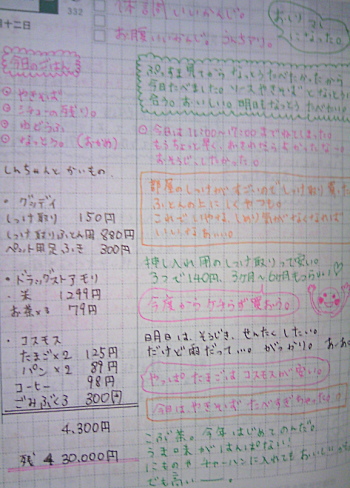 332
十二日
お腹いいかんじ。
おしりマシ
になった。
今日のごはん
・やきそば
・シチューの残り。
・ゆどうふ
・なっとう。(おかめ)
しんちゃんとかいもの。
・グッデイ
しっけ取り 150円
しっけ取りふとん用 880円
ペット用足ふき 300円
・ドラッグストアモリ
・米 1299円
お茶×3 79円
・コスモス
たまご×2 125円
パン×2 89円
コーヒー 98円
ごみぶくろ 300円
4,300円
残り 30,000円
今日たべました。ソースやきそばとなっとう
合う。おいしい。明日もなっとうたべたい
今日は11:00〜17:00まで
もうちょっと早く、
おそうじしたかった。
部屋のしっけがすごいのでしっけ取り買った
ふとんの上にしくやつも。
これでいやなしめり気がなくなれば
いいなあ。
押し入れ用のしっけ取りって安い。
3つで140円、3ヶ月〜6ヶ月もつらしい♡
今度からケチらず買おう。
明日は、そうじき、せんたくしたい。
だけど雨だって...。がっかり。
やっぱたまごはコスモスが安い。
今日は、やきそばたべすぎちゃった。
こぶ茶。今年はじめてのんだ。
うま味がはんぱない!
にものやチャーハンに入れてもおいしい
でも高いー。